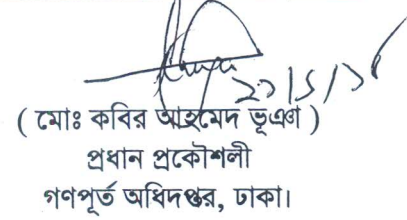 ( মোঃ কবির আহমেদ ভূঞা )
প্রধান প্রকৌশলী
গণপূর্ত অধিদপ্তর, ঢাকা।